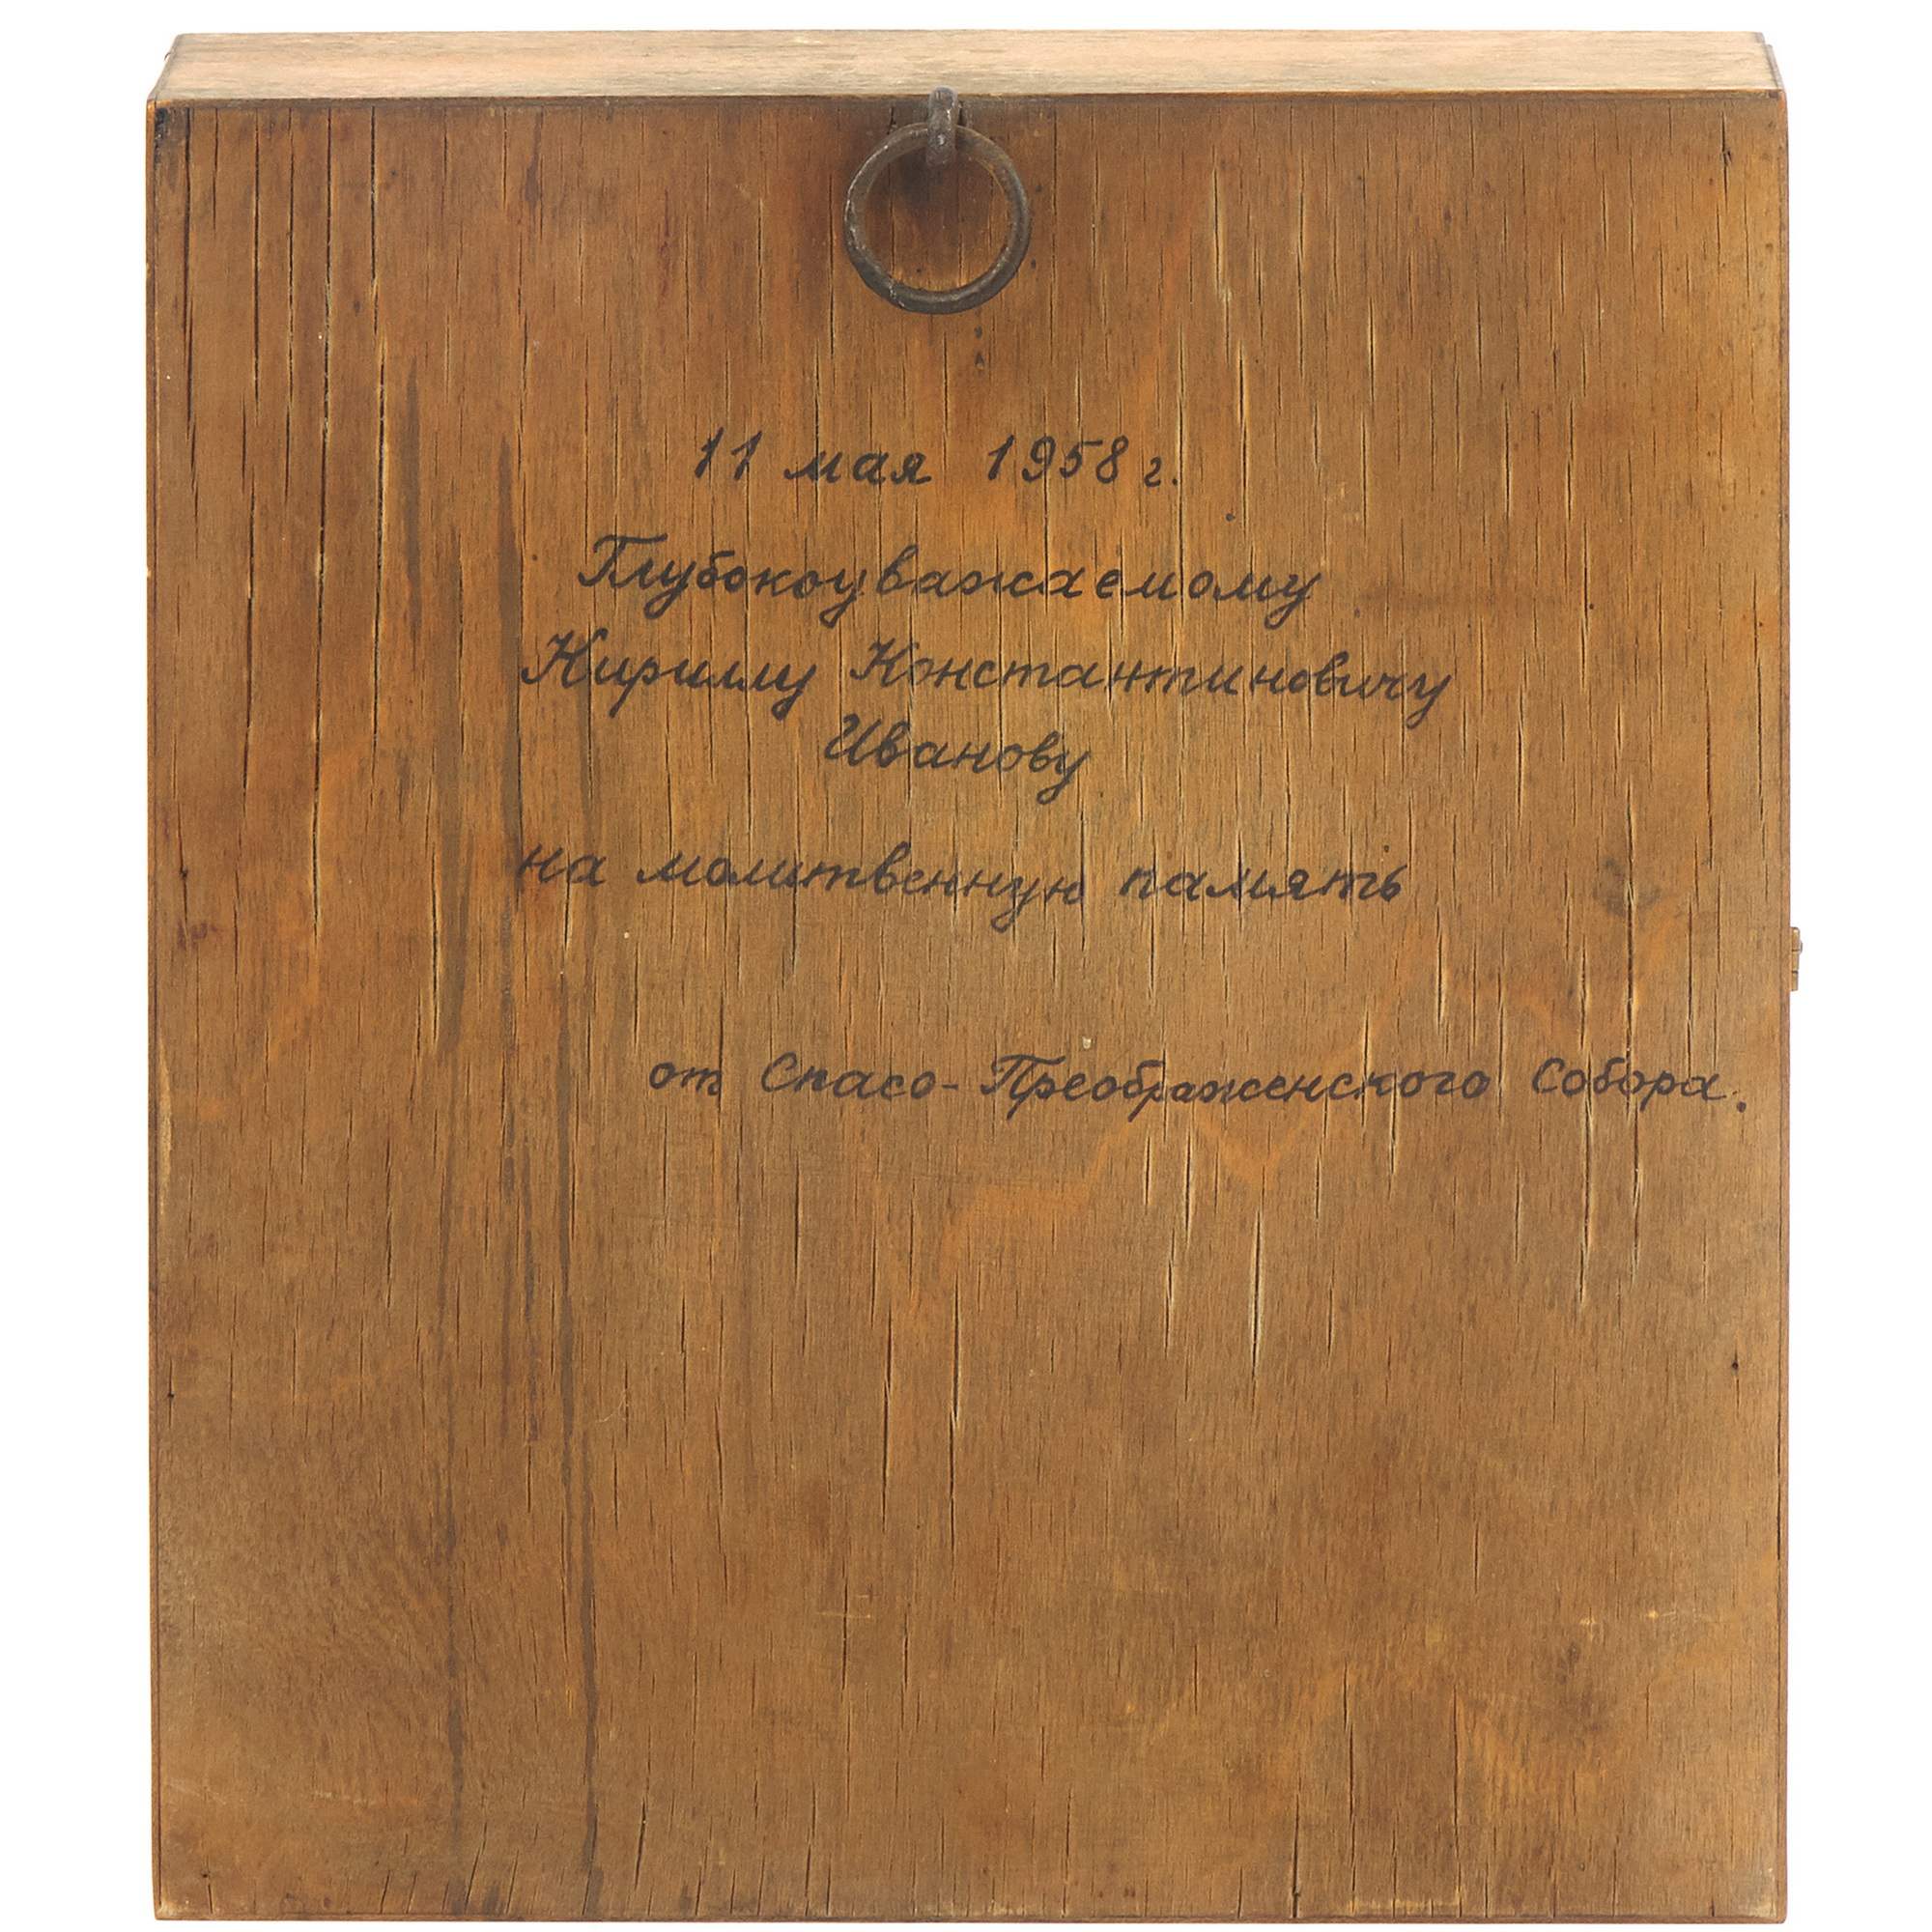 11 мая 1958 г.
Глубокоуважаемому
Кириллу Константиновичу
Иванову
на молитвенную память
от Спасо-Преображенского Собора.